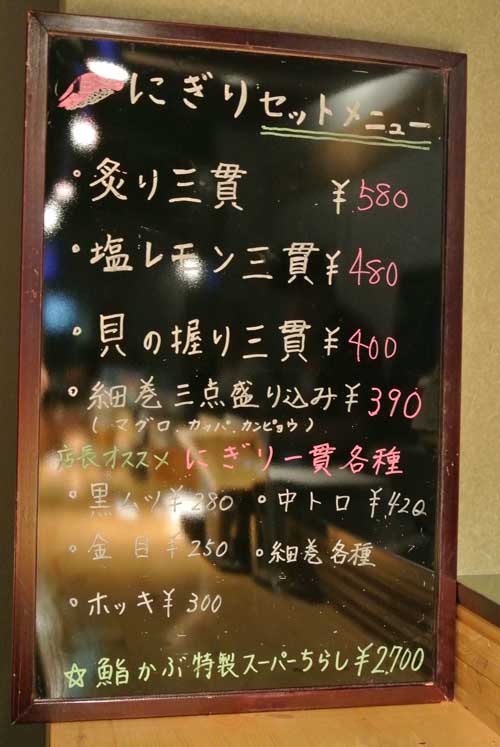 にぎりセットメニュー
・炙り三貫 ¥580
・塩レモン三貫 ¥480
・貝の握り三貫 ¥400
・細巻三点盛り込み ¥390
(マグロ.カッパ.カンピョウ)
店長オススメ にぎり一貫各種
・黒ムツ ¥280 ・中トロ ¥420
・金目 ¥250 ・細巻各種
・ホッキ ¥300
☆鮨かぶ特製スーパーちらし ¥2,700